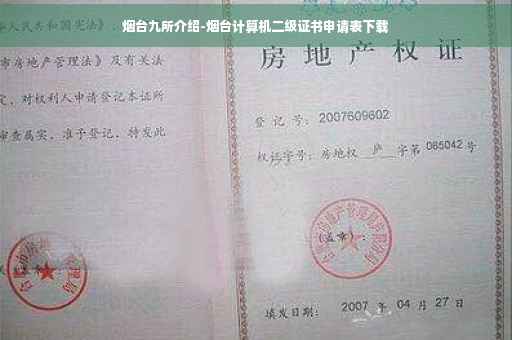 烟台九所介绍-烟台计算机二级证书申请表下载
人民共和国宪法》、
市房地产管理法》及有关法
定，对权利人申请登记本证所
审查属实，准予登记，特发此
房地产权证
登记号：2007609602
权证字号：房地权 庐 字第 065042 号
(盖章)：
填发日期：2007 年 04 月 27 日